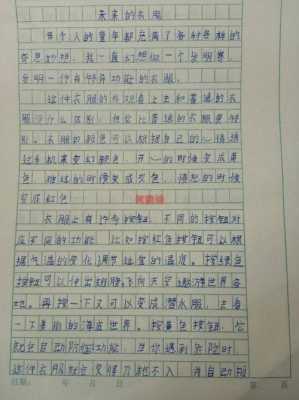 未来的衣服
每个人的童年都充满了各种各样的
奇思妙想，我一直幻想做一个发明家，
发明一件有特异功能的衣服。
这件衣服的外观看上去和普通的衣服
没什么区别，但它比普通的衣服更特
别。衣服的颜色可以根据自己的心情通
过手机来变幻颜色，开心的时候变成黄
色，难过的时候变成灰色，愤怒的时候
变成红色。
衣服上有许多按钮，不同的按钮对
应不同的功能，比如按红色按钮可以根
据气温的变化，调节适宜的温度。按绿色
按钮可以伸出翅膀，飞向天空，遨游世界各
地。再按一下又可以变成潜水服，去看
一下美丽的海底世界。按黄色按钮，它
就会自动防御功能，当你遇到危险时，
这件衣服就会变得刀枪不入，并自动报
日期： 年 月 日 第 页